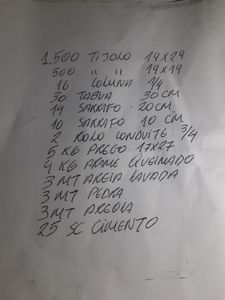 1.500 TIJOLO 14X29
500 " " 14X14
16 COLUNA 1/4
30 TABUA 30 CM
14 SARRAFO - 20CM
10 SARRAFO 10 CM
2 ROLO CONDUITE 3/4
5 KG PREGO 17X27
4 KG ARAME QUEIMADO
3 MT AREIA LAVADA
3 MT PEDRA
3 MT AREGIA
25 SC CIMENTO